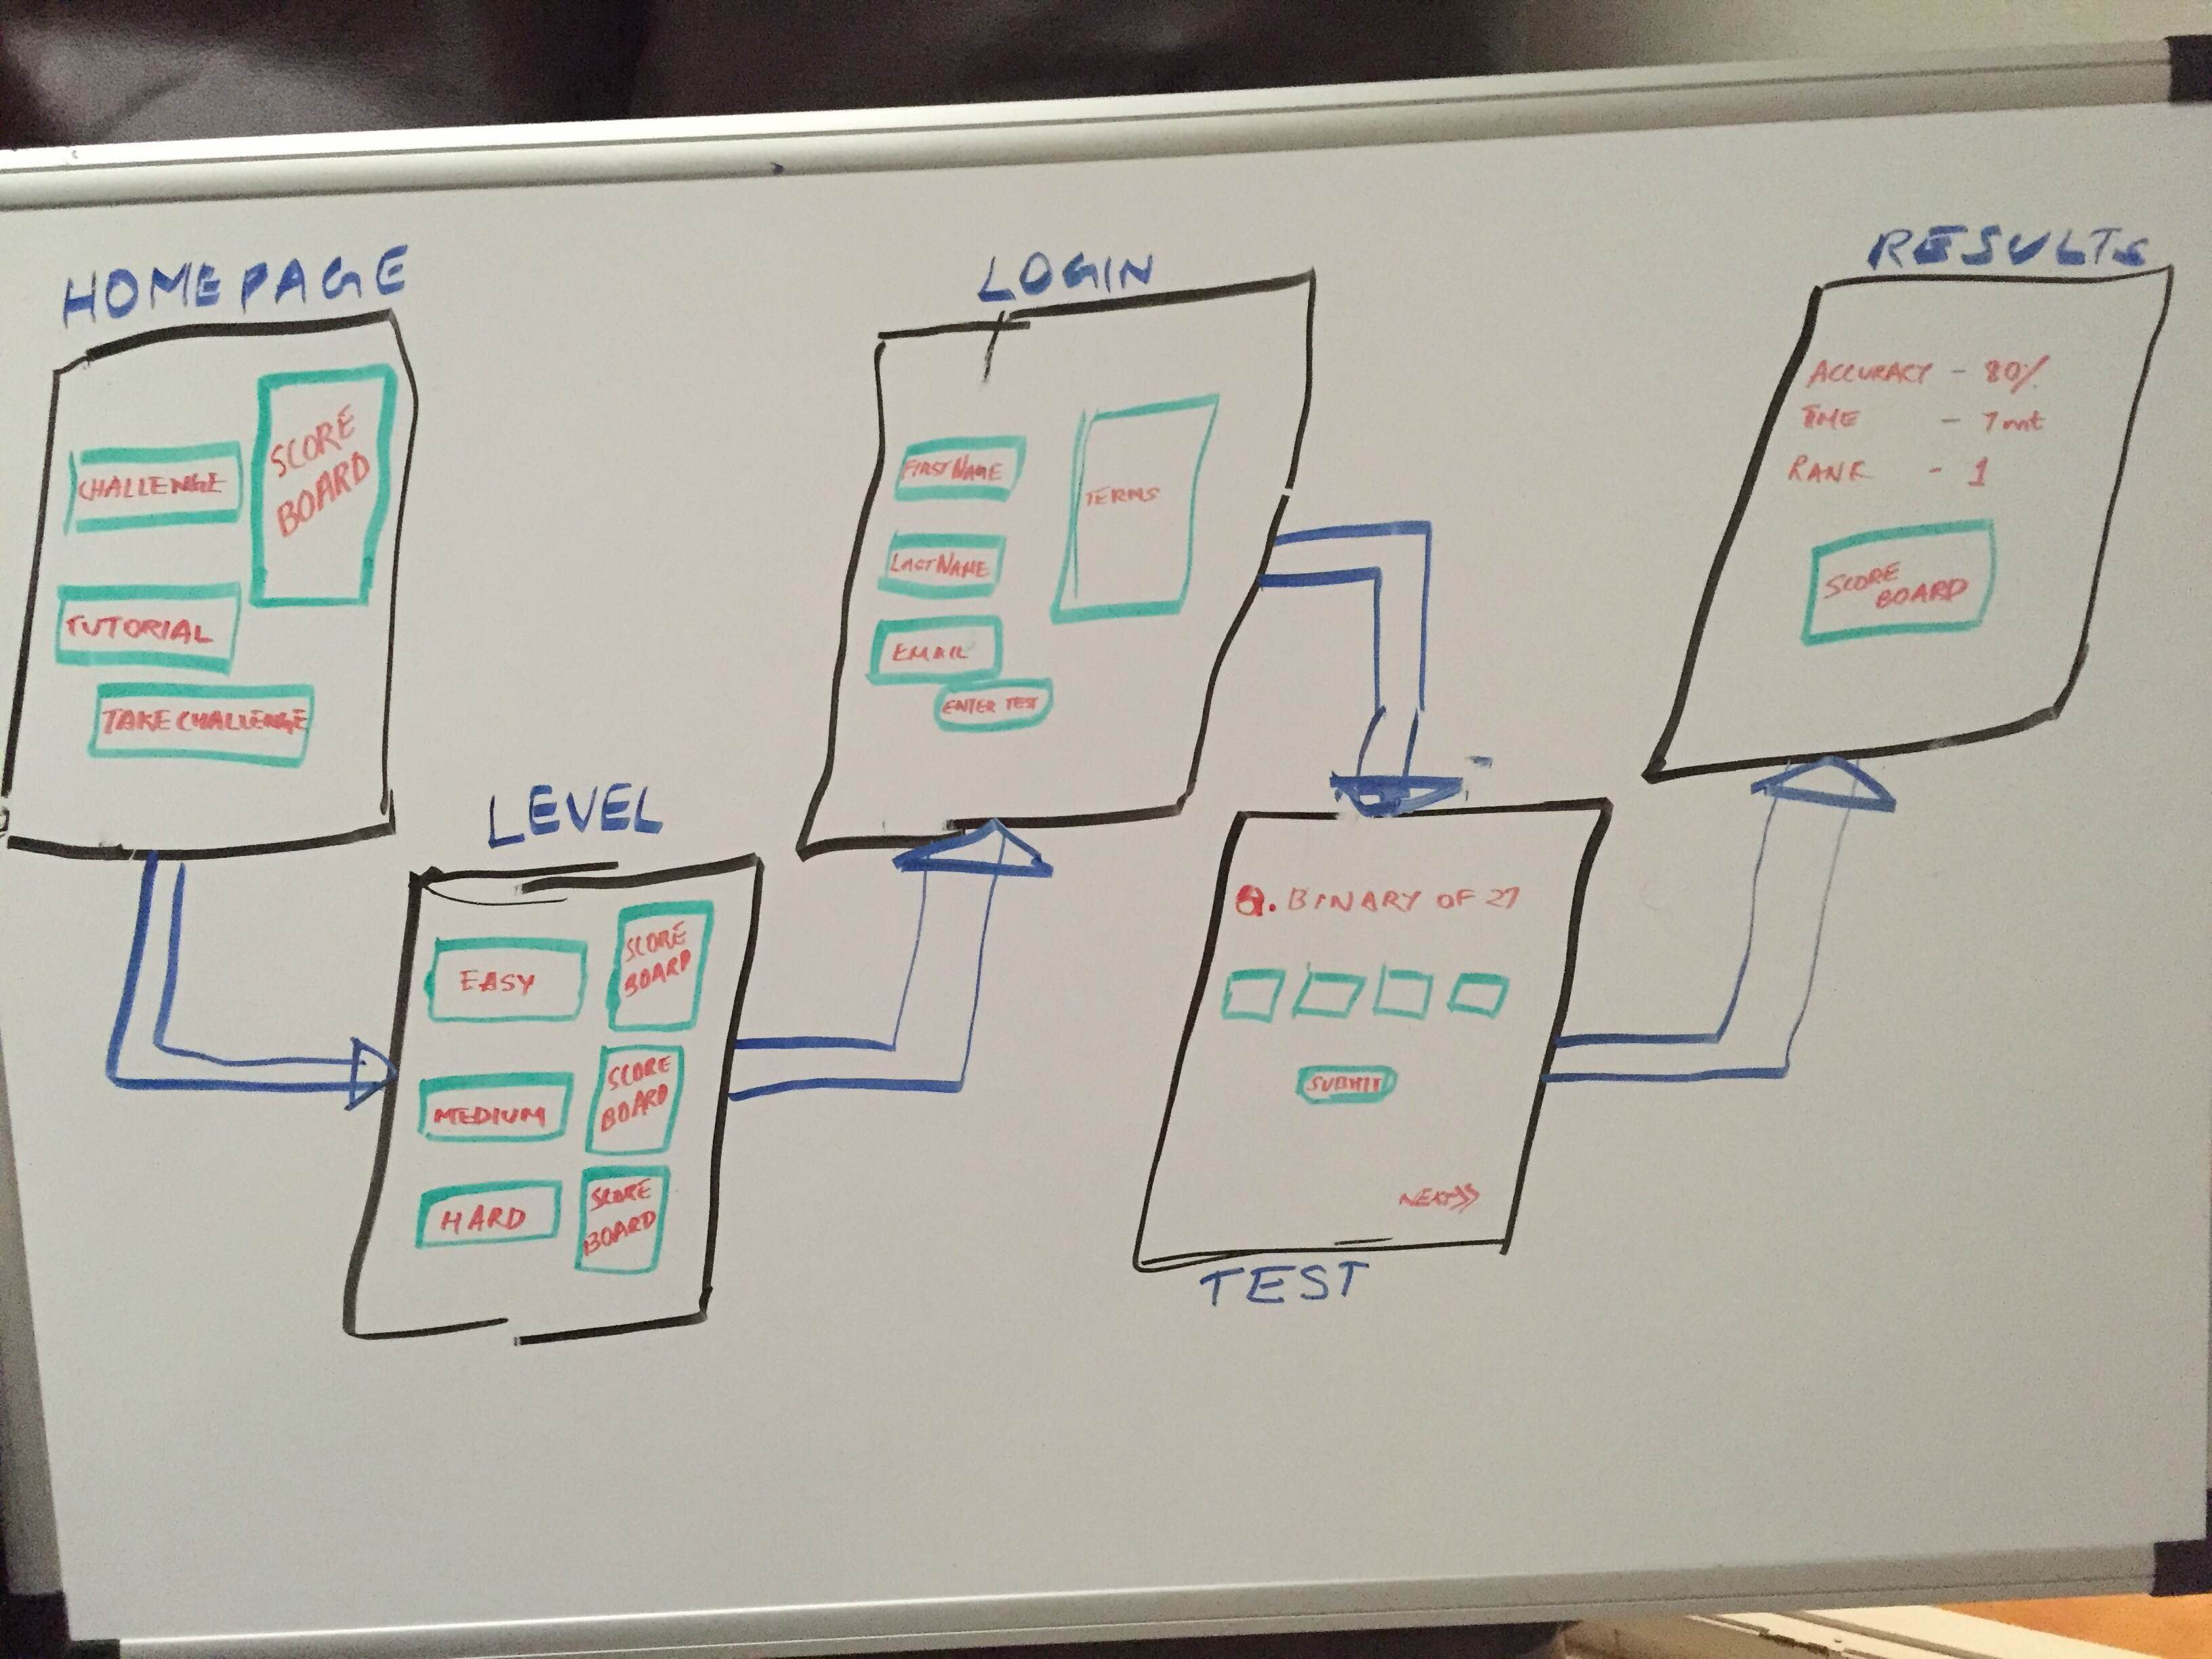 HOMEPAGE
CHALLENGE
SCORE
BOARD
TUTORIAL
TAKE CHALLENGE
LEVEL
EASY
SCORE
BOARD
MEDIUM
SCORE
BOARD
HARD
SCORE
BOARD
LOGIN
FIRST NAME
TERMS
LAST NAME
EMAIL
ENTER TEST
Q. BINARY OF 27
SUBMIT
NEXT>>
TEST
RESULTS
ACCURACY - 80%
TIME - 7 mt
RANK - 1
SCORE
BOARD